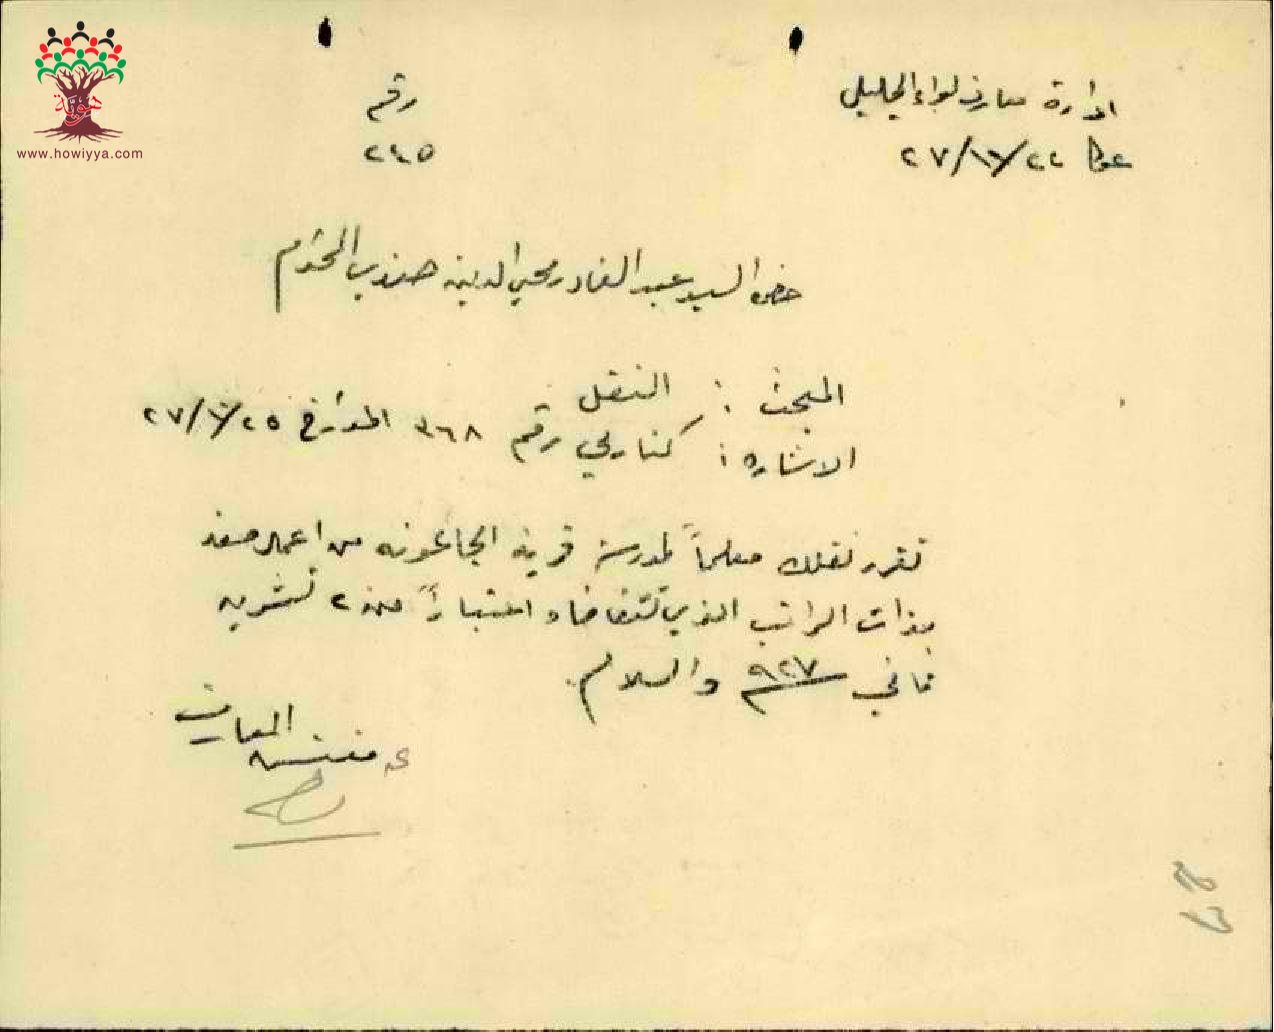 هوية
www.howiyya.com
ادارة معارف لواء الجليلي
عكا
رقم
٢٤٥
حضرة السيد عبد القادر محيي الدين المحترم
المبحث : النقل
الاشاره : كتابي رقم ٣٦٨ المؤرخ
تقرر نقلك معلماً لمدرسة قرية الجاعونه من اعمال صفد
بذات الراتب الذي تتقاضاه اعتباراً من ٢ تشرين
ثاني ٩٢٧ والسلام
مفتش المعارف